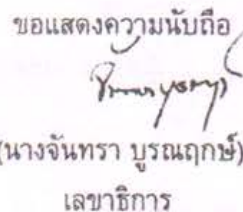 ขอแสดงความนับถือ
(นางจันทรา บูรณฤกษ์)
เลขาธิการ